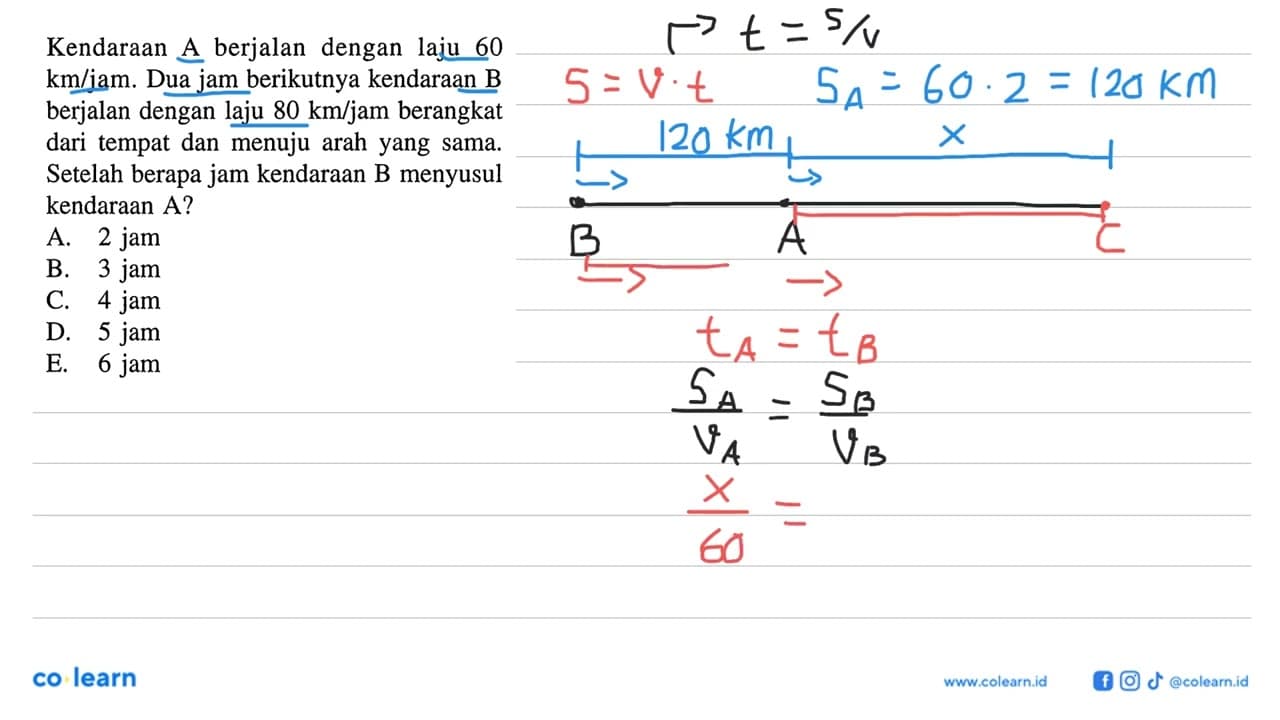 Kendaraan A berjalan dengan laju 60
km/jam. Dua jam berikutnya kendaraan B
berjalan dengan laju 80 km/jam berangkat
dari tempat dan menuju arah yang sama.
Setelah berapa jam kendaraan B menyusul
kendaraan A?
A. 2 jam
B. 3 jam
C. 4 jam
D. 5 jam
E. 6 jam
t = s/v
S = v . t
SA = 60 . 2 = 120 KM
120 km
x
B
A
C
tA = tB
SA/VA = SB/VB
x/60 =
co learn
www.colearn.id
@colearn.id